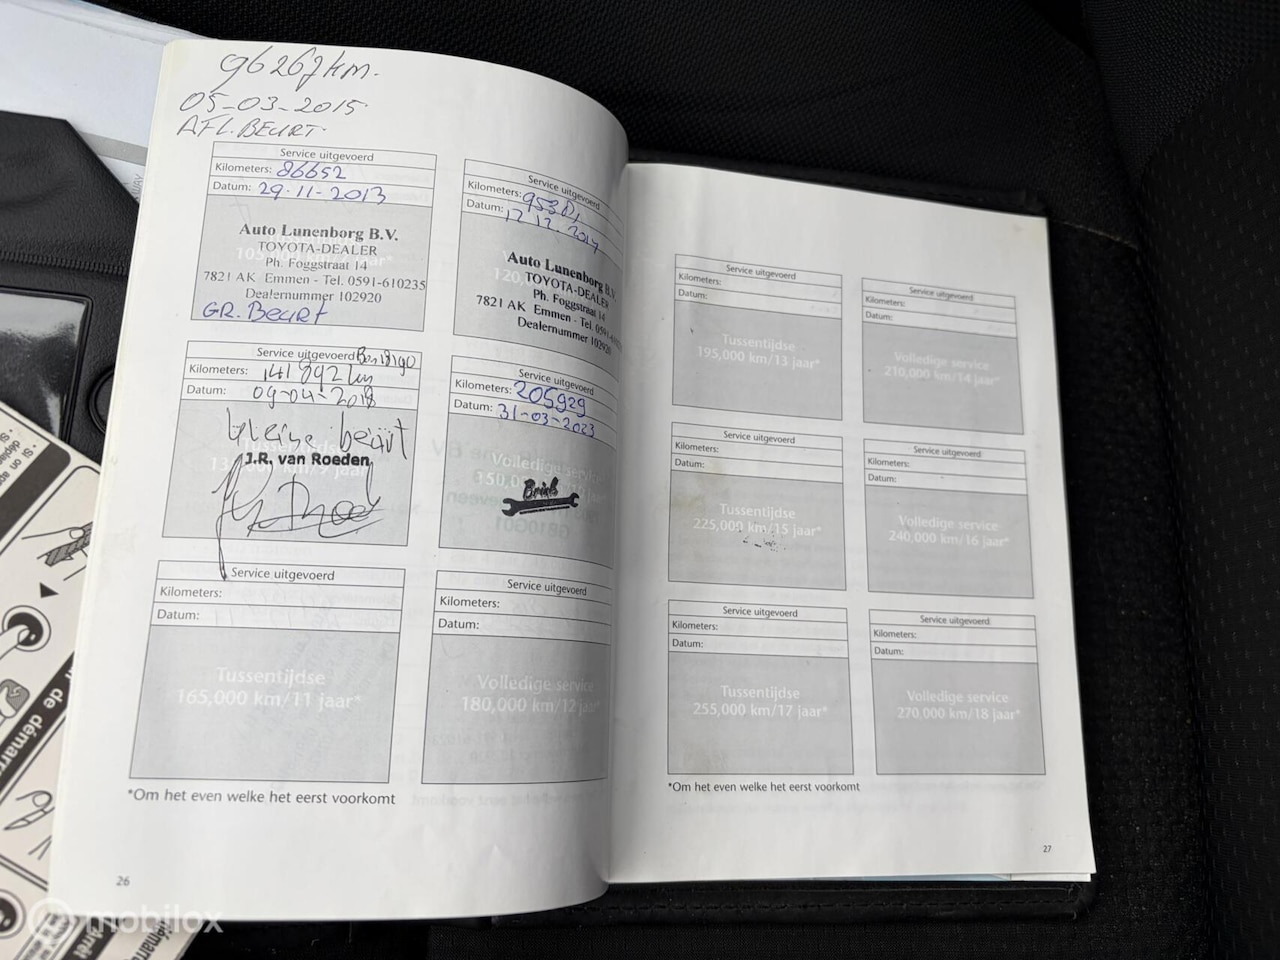 96267km.
05-03-2015.
AFL. BEURT.
Service uitgevoerd
Kilometers: 86652
Datum: 29-11-2013
Auto Lunenborg B.V.
TOYOTA-DEALER
Ph. Foggstraat 14
7821 AK Emmen - Tel. 0591-610235
Dealernummer 102920
GR. BEURT
Service uitgevoerd
Kilometers:
Datum: 12 12. 2014
Auto Lunenborg B.V.
TOYOTA-DEALER
Ph. Foggstraat 14
7821 AK Emmen - Tel. 0591-
Dealernummer 102920
Service uitgevoerd
Kilometers: 141892 km
Datum: 09-04-2018
kleine beurt
J.R. van Roeden
Service uitgevoerd
Kilometers: 205929
Datum: 31-03-2023
Volledige service
Service uitgevoerd
Kilometers:
Datum:
Tussentijdse
165,000 km/11 jaar*
Service uitgevoerd
Kilometers:
Datum:
Volledige service
180,000 km/12 jaar*
*Om het even welke het eerst voorkomt
26
Service uitgevoerd
Kilometers:
Datum:
Tussentijdse
195,000 km/13 jaar*
Service uitgevoerd
Kilometers:
Datum:
Volledige service
210,000 km/14 jaar*
Service uitgevoerd
Kilometers:
Datum:
Tussentijdse
225,000 km/15 jaar*
Service uitgevoerd
Kilometers:
Datum:
Volledige service
240,000 km/16 jaar*
Service uitgevoerd
Kilometers:
Datum:
Tussentijdse
255,000 km/17 jaar*
Service uitgevoerd
Kilometers:
Datum:
Volledige service
270,000 km/18 jaar*
*Om het even welke het eerst voorkomt
27
mobilox